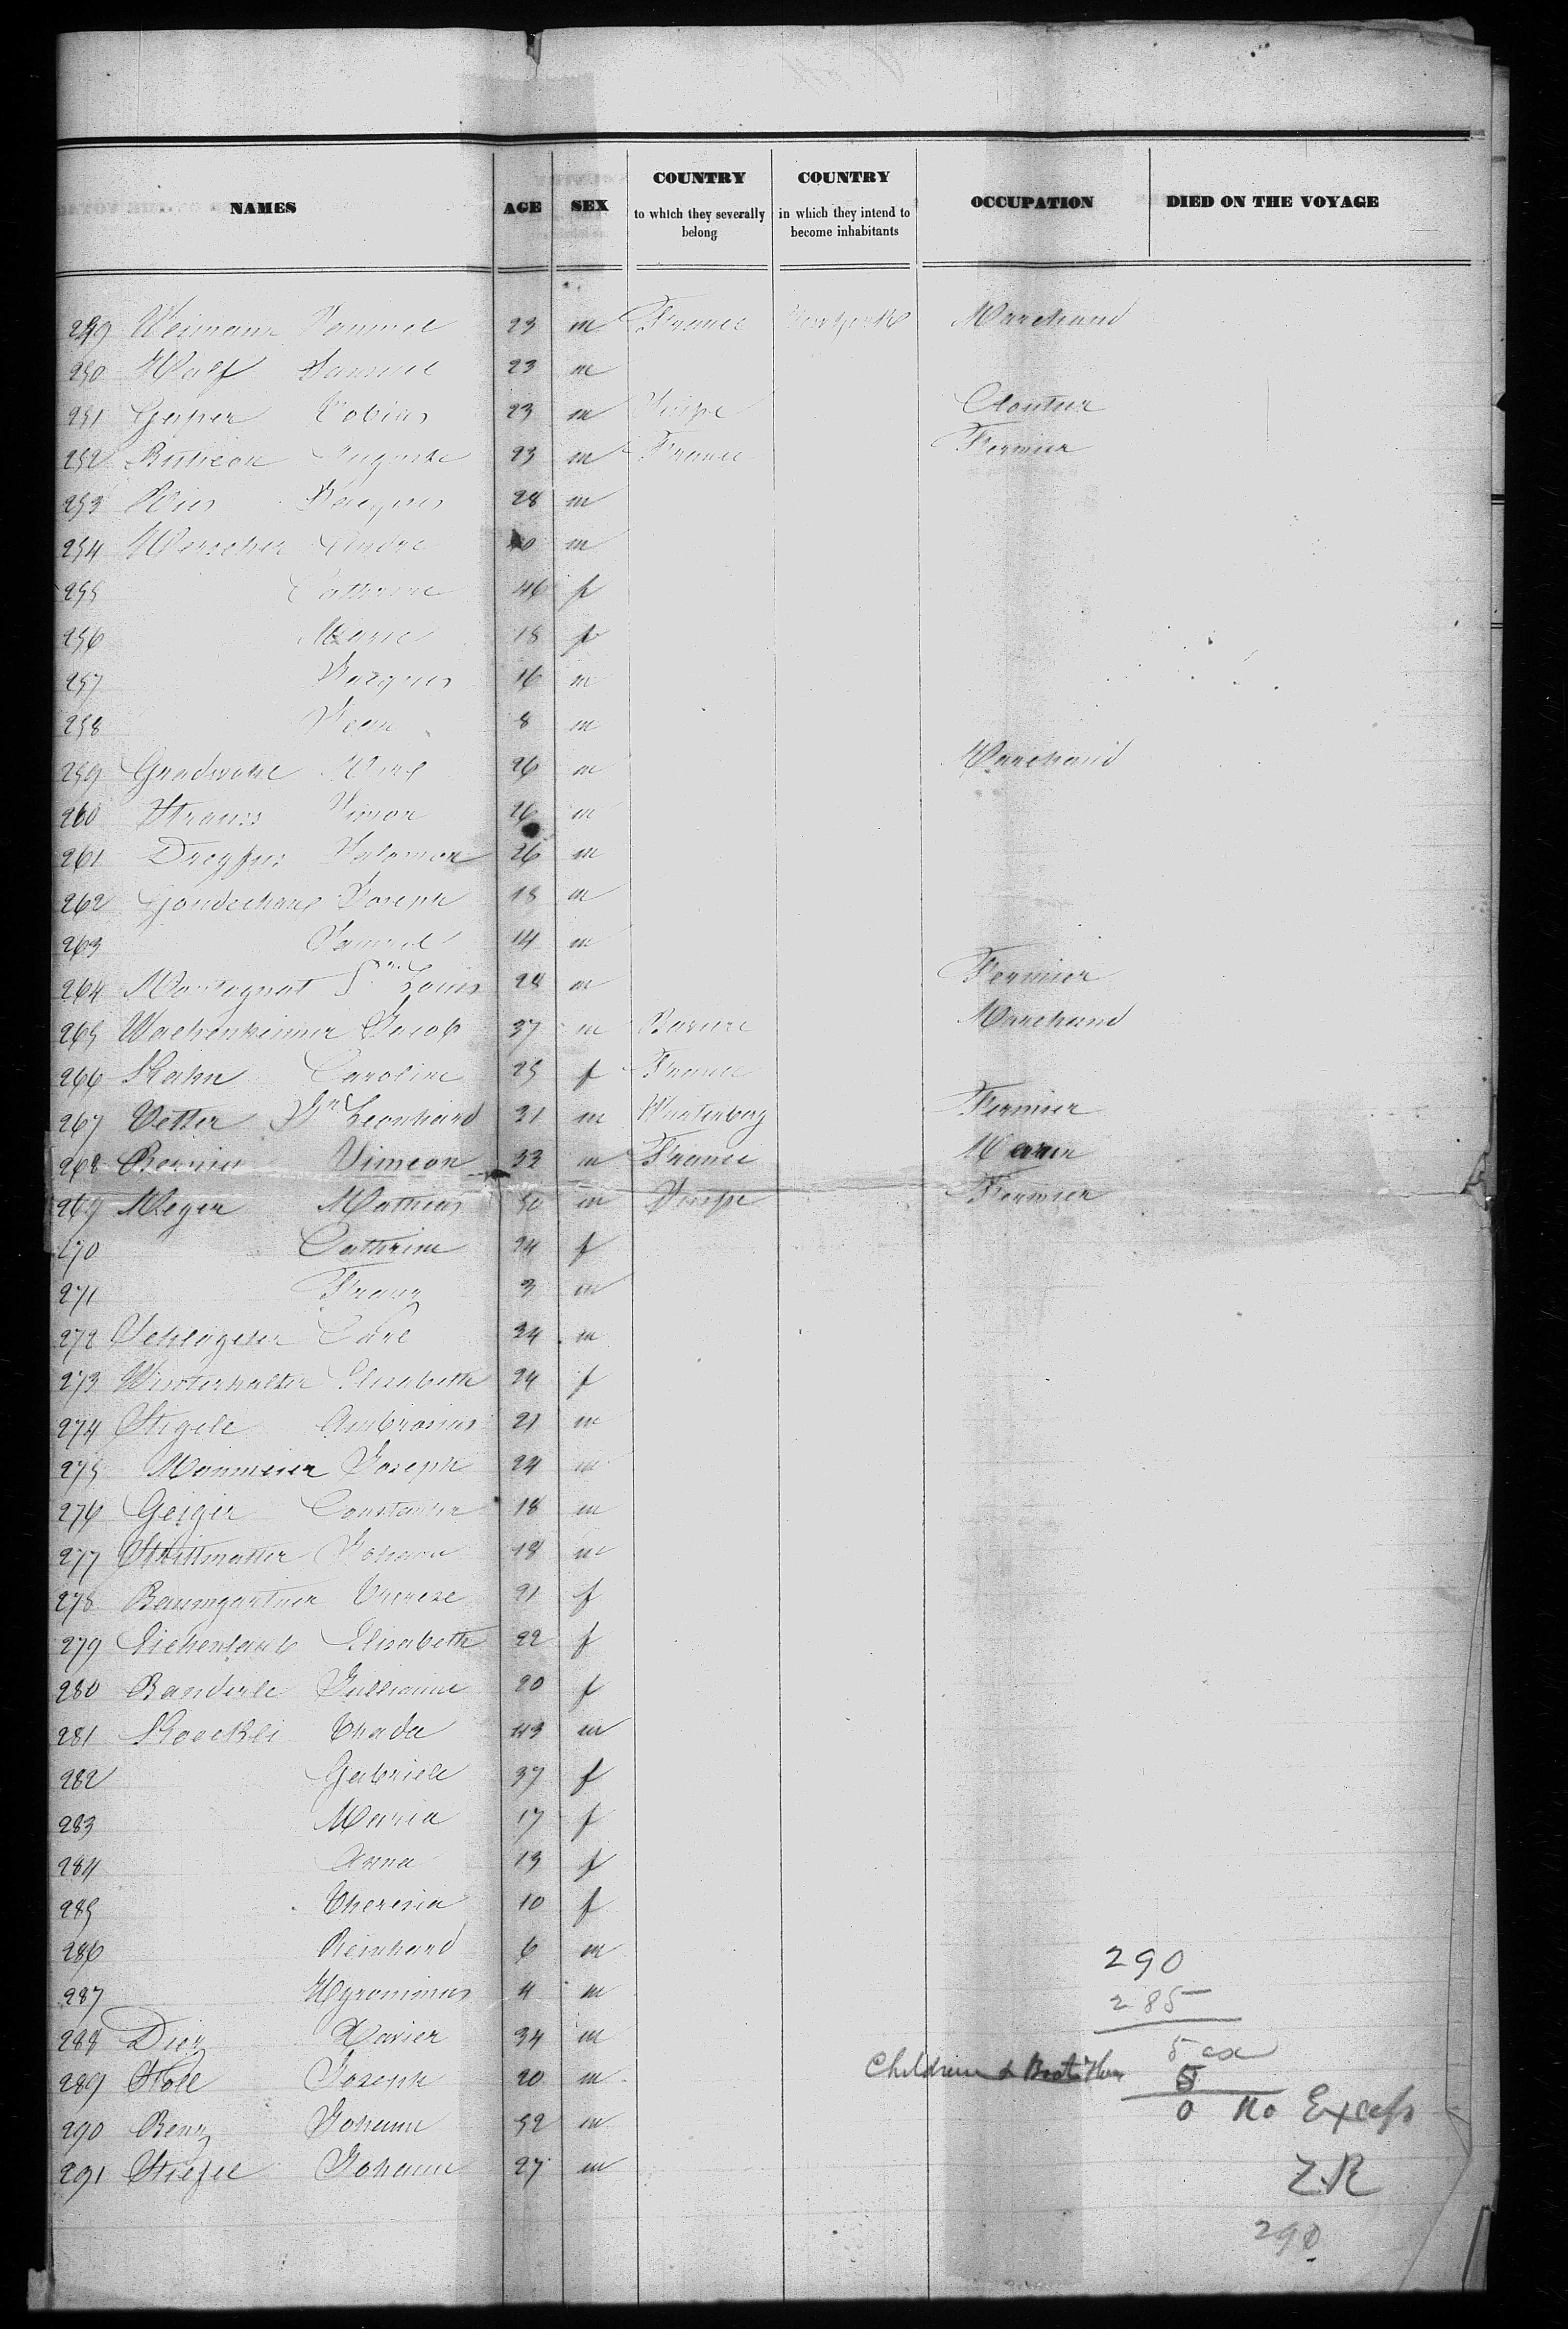 NAMES AGE SEX COUNTRY to which they severally belong COUNTRY in which they intend to become inhabitants OCCUPATION DIED ON THE VOYAGE
249 Weimann Samuel 23 m France Marchand
250 Half Samuel 23 m
251 Tobias 23 m Suisse Cloutier
252 Auguste 23 m France Fermier
253 Ries Jacques 28 m
254 André m
255 Catherine 46 f
256 Marie 18 f
257 Jacques 16 m
258 Jean 8 m
259 Gradwohl 26 m Marchand
260 Strauss Simon 26 m
261 Dreyfus Salomon 26 m
262 Goudchaux Joseph 18 m
263 Samuel 14 m
264 Louis 28 m Fermier
265 Wachenheimer Jacob 37 m Baviere Marchand
266 Kahn Caroline 25 f France
267 Vetter Leonhard 31 m Wurtenberg Fermier
268 Simeon 33 m France
269 Meyer Mathias 30 m Suisse Fermier
270 Catherine 24 f
271 Franz 3 m
272 Schlageter Carl 34 m
273 Winterhalter Elisabeth 24 f
274 Stigele Ambrosius 21 m
275 Joseph 24 m
276 Geiger Constantin 18 m
277 Strittmatter Johann 18 m
278 Baumgartner Therese 21 f
279 Siehenlaub Elisabeth 22 f
280 Banderle Jullianne 20 f
281 Koeckli Thada 43 m
282 Gabriele 37 f
283 Maria 17 f
284 Anna 13 f
285 Theresia 10 f
286 Reinhard 6 m
287 Hyronimus 4 m
288 Dioz Xavier 34 m
289 Stoll Joseph 20 m
290 Benz Johann 52 m
291 Stiefel Johann 27 m
290
285
5
Children & 5
0 No Excess
Z.R
290